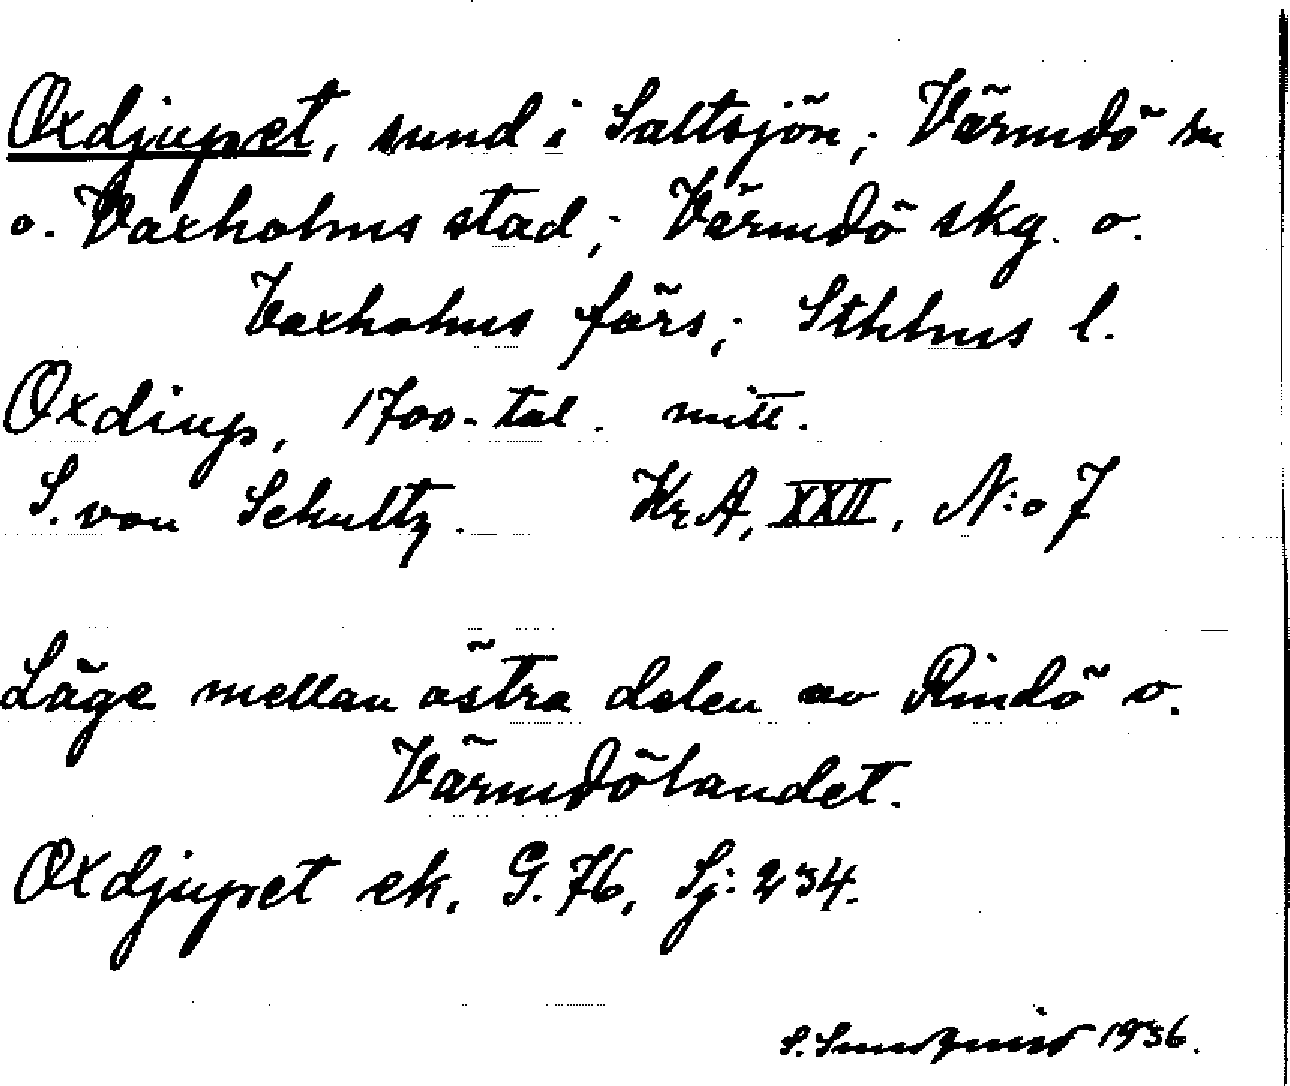 Oxdjupet, sund i Saltsjön; Värmdö sn
o. Vaxholms stad; Värmdö skg. o.
Vaxholms förs; Sthlms l.
Oxdiup, 1700-tal. mitt.
S. von Schultz. KrA, XXII, N:o 7
Läge mellan östra delen av Rindö o.
Värmdölandet.
Oxdjupet ek. G. 76, Sj: 234.
S. Sundqvist 1936.